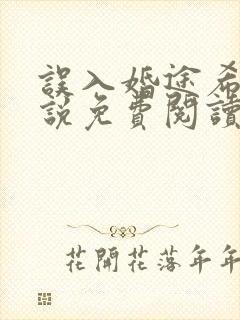 誤入婚途希
說免費閱讀
花開花落年年